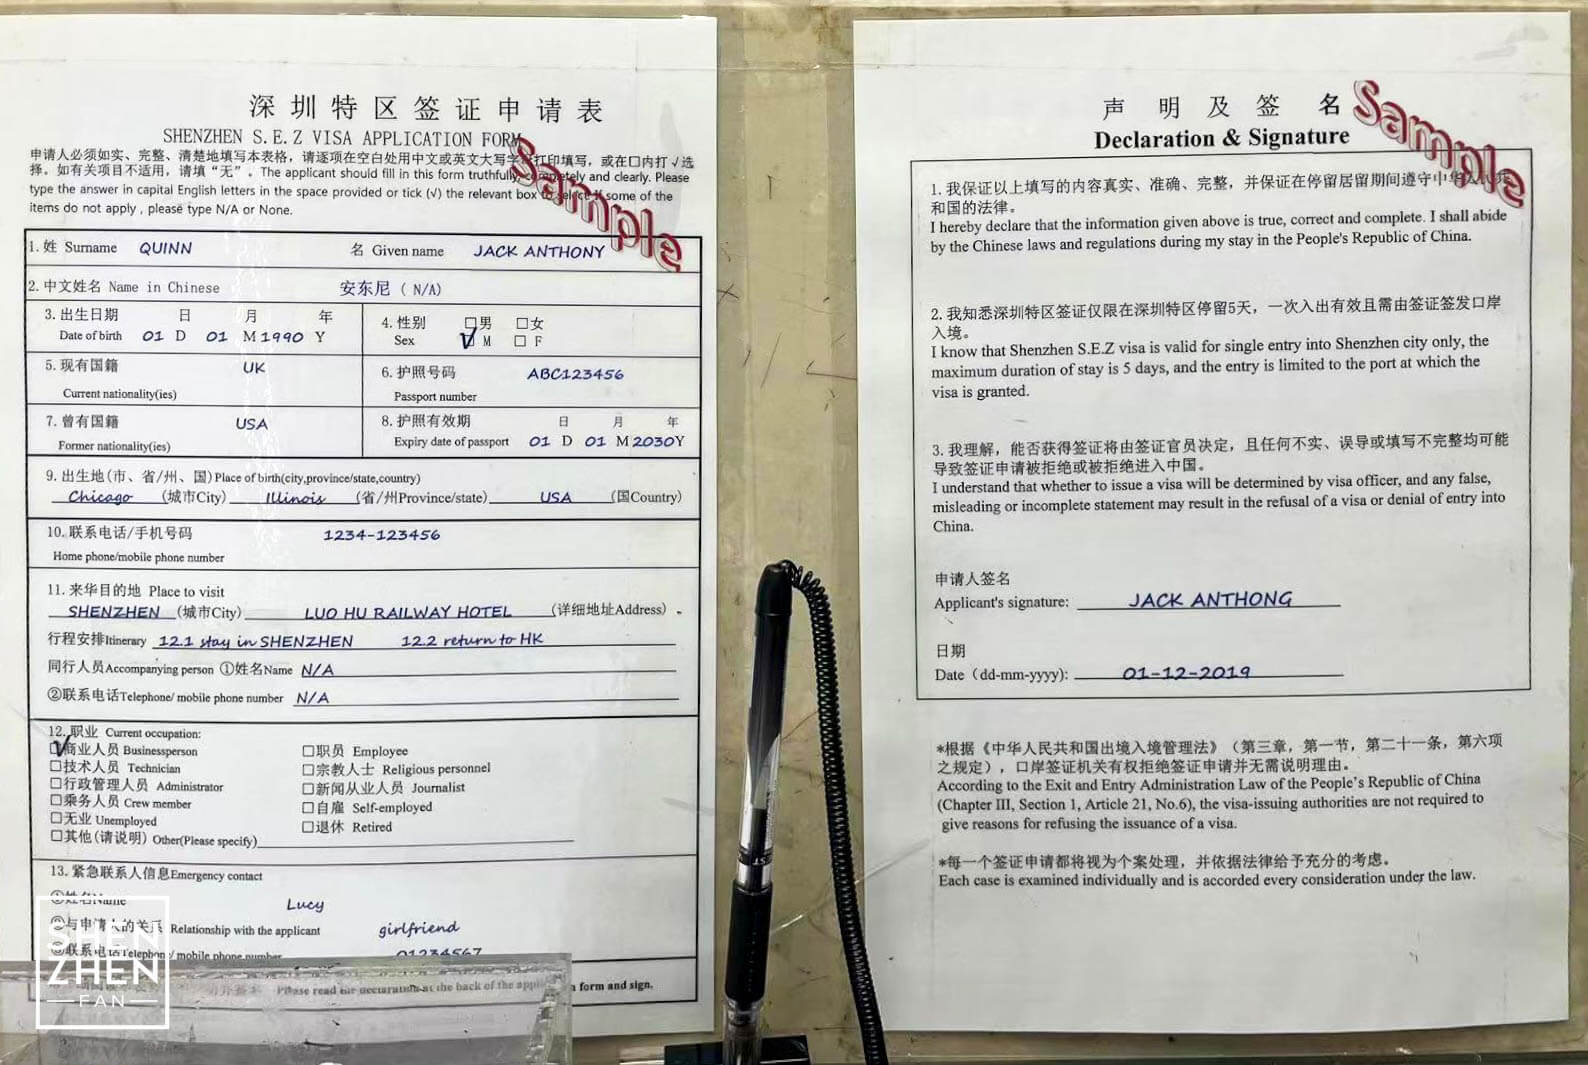 深圳特区签证申请表
SHENZHEN S.E.Z VISA APPLICATION FORM
Sample
申请人必须如实、完整、清楚地填写本表格，请逐项在空白处用中文或英文大写字打印填写，或在□内打√选
择。如有关项目不适用，请填“无”。The applicant should fill in this form truthfully, completely and clearly. Please
type the answer in capital English letters in the space provided or tick (√) the relevant box to select some of the
items do not apply , please type N/A or None.
1. 姓 Surname QUINN 名 Given name JACK ANTHONY
2. 中文姓名 Name in Chinese 安东尼 ( N/A)
3. 出生日期 日 月 年
Date of birth 01 D 01 M 1990 Y
4. 性别 □男 □女
Sex √ □ M □ F
5. 现有国籍 UK
Current nationality(ies)
6. 护照号码 ABC123456
Passport number
7. 曾有国籍 USA
Former nationality(ies)
8. 护照有效期 日 月 年
Expiry date of passport 01 D 01 M 2030 Y
9. 出生地(市、省/州、国)Place of birth(city,province/state,country)
Chicago (城市City) Illinois (省/州Province/state) USA (国Country)
10. 联系电话/手机号码 1234-123456
Home phone/mobile phone number
11. 来华目的地 Place to visit
SHENZHEN (城市City) LUO HU RAILWAY HOTEL (详细地址Address)
行程安排Itinerary 12.1 stay in SHENZHEN 12.2 return to HK
同行人员Accompanying person ①姓名Name N/A
②联系电话Telephone/ mobile phone number N/A
12. 职业 Current occupation:
√ □商业人员 Businessperson □职员 Employee
□技术人员 Technician □宗教人士 Religious personnel
□行政管理人员 Administrator □新闻从业人员 Journalist
□乘务人员 Crew member □自雇 Self-employed
□无业 Unemployed □退休 Retired
□其他(请说明) Other(Please specify)
13. 紧急联系人信息Emergency contact
①姓名Name Lucy
②与申请人的关系 Relationship with the applicant girlfriend
③联系电话Telephone/ mobile phone number 01234567
Please read the declaration at the back of the form and sign.
SHEN
ZHEN
FAN
声明及签名
Declaration & Signature
Sample
1. 我保证以上填写的内容真实、准确、完整，并保证在停留居留期间遵守中华人民共
和国的法律。
I hereby declare that the information given above is true, correct and complete. I shall abide
by the Chinese laws and regulations during my stay in the People's Republic of China.
2. 我知悉深圳特区签证仅限在深圳特区停留5天，一次入出有效且需由签证签发口岸
入境。
I know that Shenzhen S.E.Z visa is valid for single entry into Shenzhen city only, the
maximum duration of stay is 5 days, and the entry is limited to the port at which the
visa is granted.
3. 我理解，能否获得签证将由签证官员决定，且任何不实、误导或填写不完整均可能
导致签证申请被拒绝或被拒绝进入中国。
I understand that whether to issue a visa will be determined by visa officer, and any false,
misleading or incomplete statement may result in the refusal of a visa or denial of entry into
China.
申请人签名
Applicant's signature: JACK ANTHONG
日期
Date（dd-mm-yyyy): 01-12-2019
*根据《中华人民共和国出境入境管理法》（第三章，第一节，第二十一条，第六项
之规定），口岸签证机关有权拒绝签证申请并无需说明理由。
According to the Exit and Entry Administration Law of the People's Republic of China
(Chapter III, Section 1, Article 21, No.6), the visa-issuing authorities are not required to
give reasons for refusing the issuance of a visa.
*每一个签证申请都将视为个案处理，并依据法律给予充分的考虑。
Each case is examined individually and is accorded every consideration under the law.